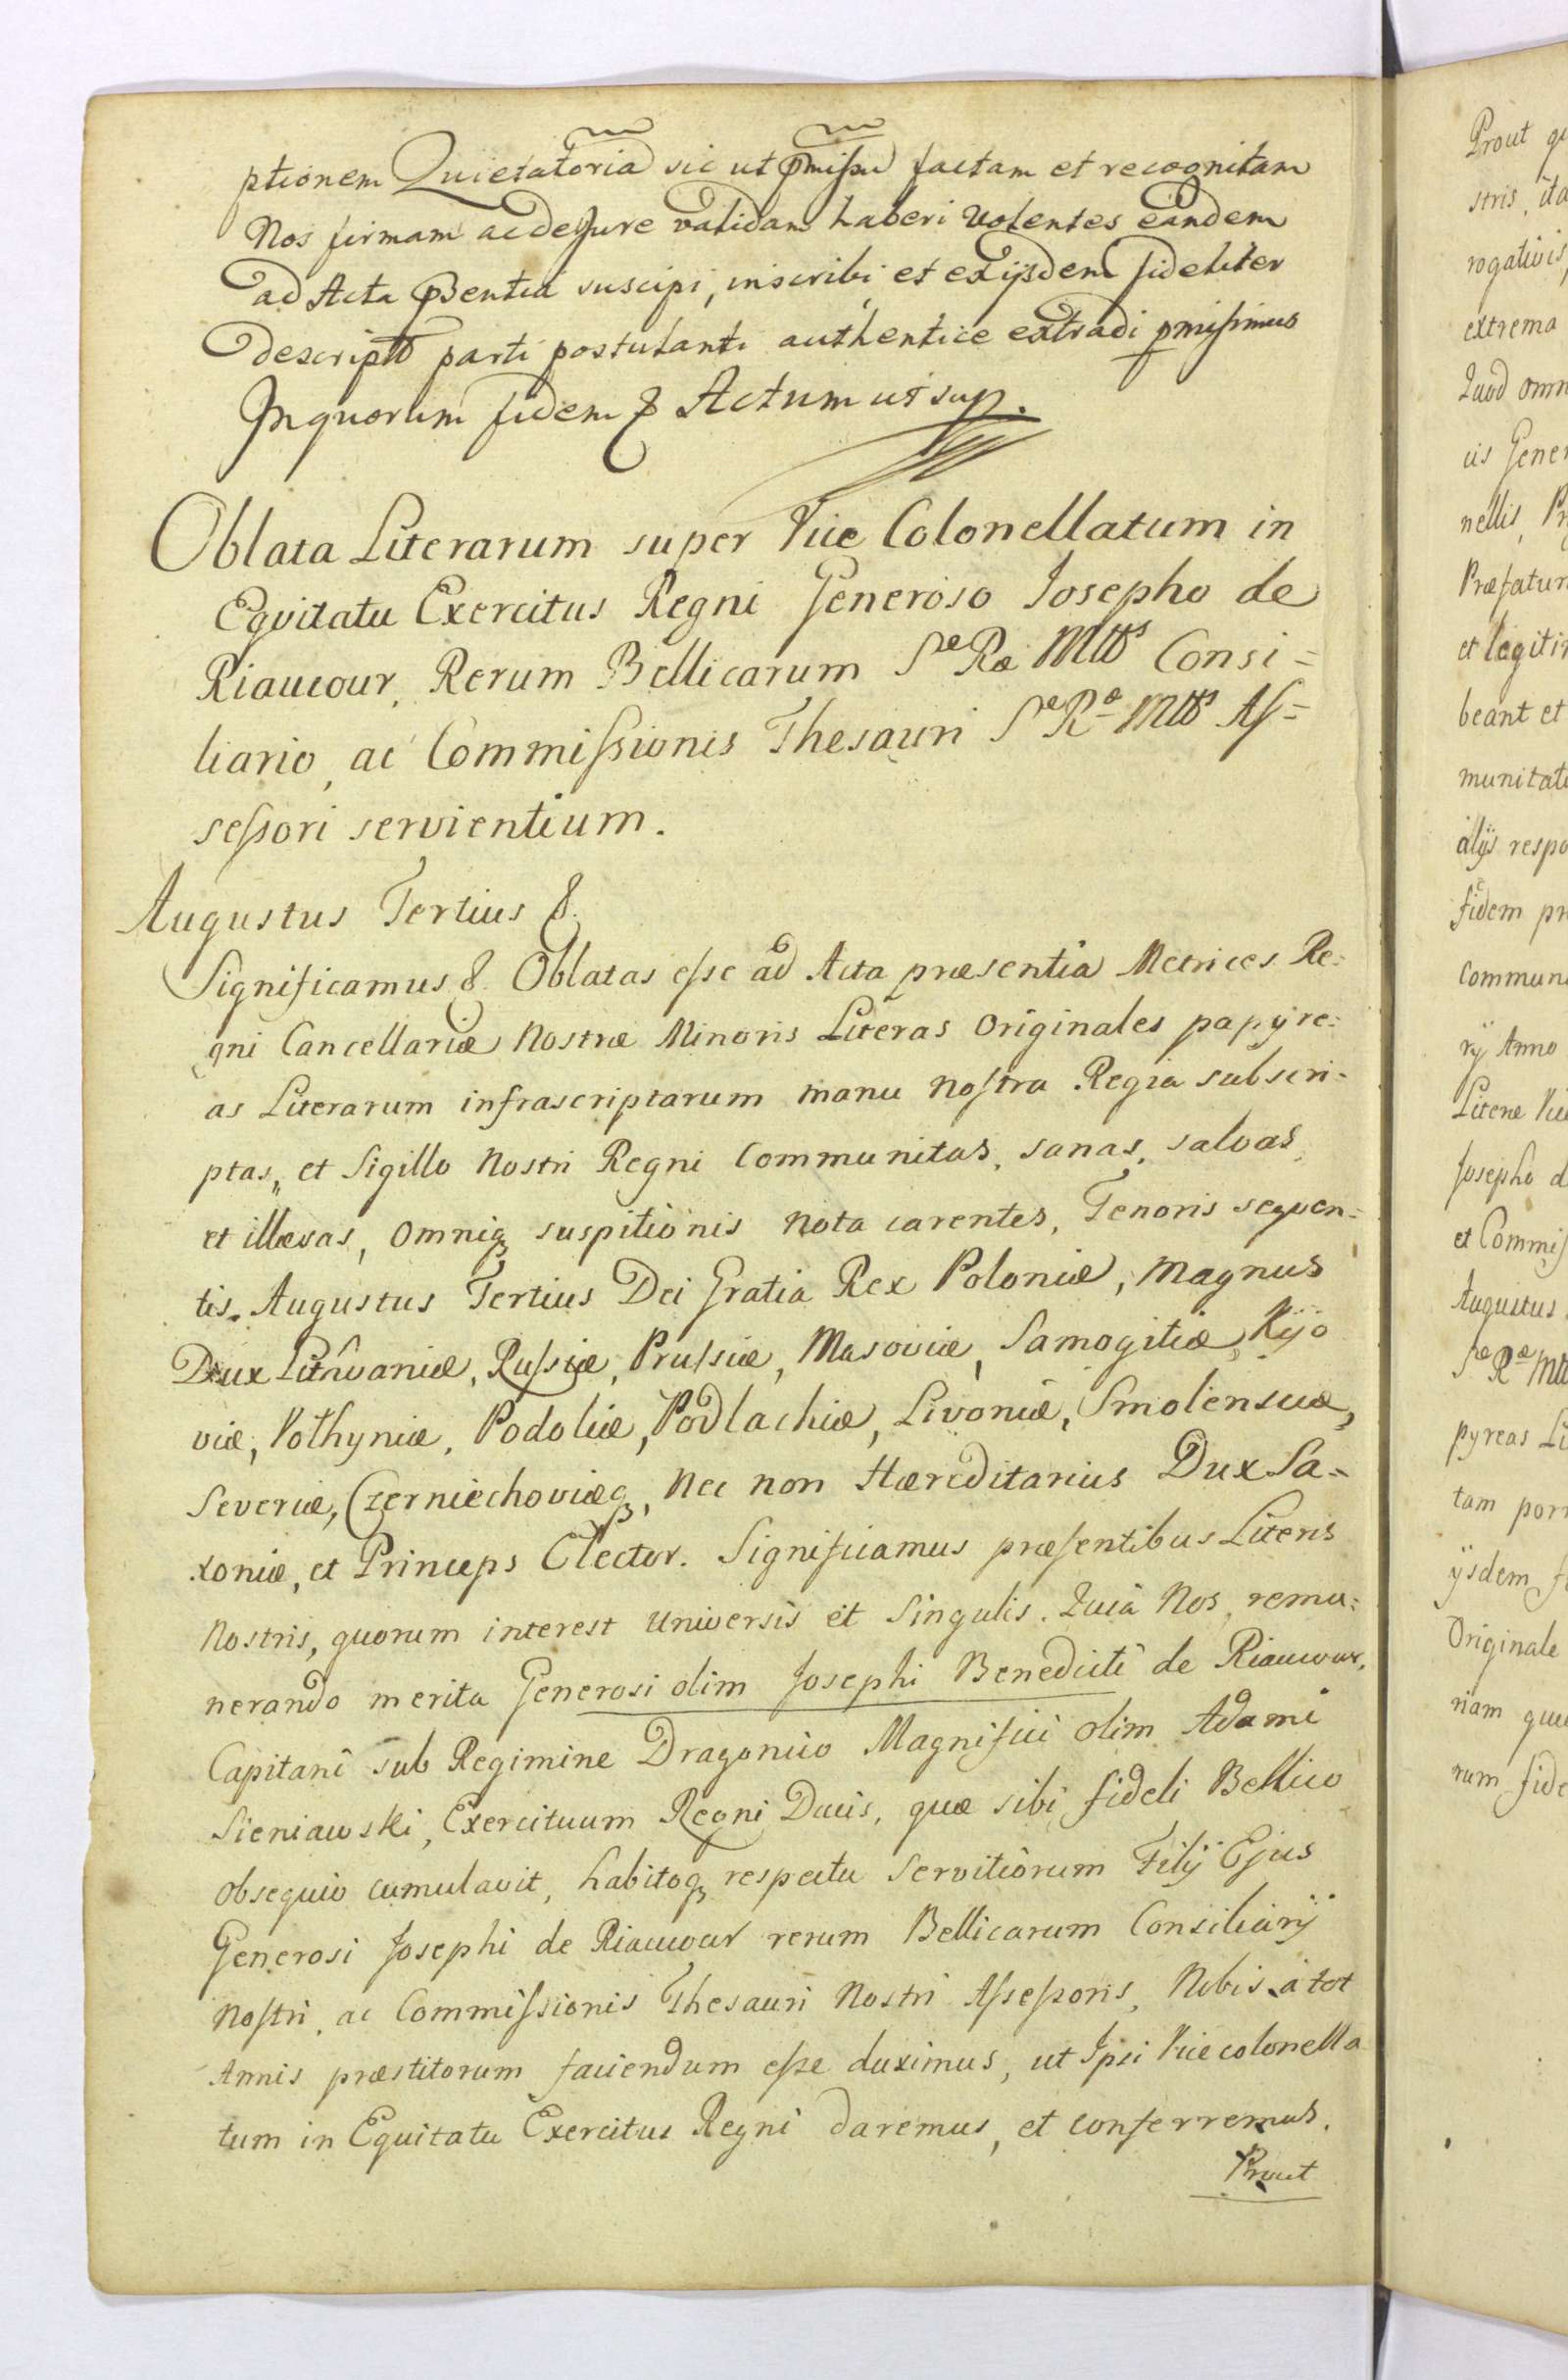 ptionem Quietatoria sic ut pmissu factam et recognitam
Nos firmam ac de Jure validam haberi Volentes eandem
ad Acta pSentia suscipi, inscribi et ex ijsdem fideliter
descriptã parti postulanti authentice extradi pmisimus
In quorum fidem & Actum ut sup.
Oblata Literarum super Vice Colonellatum in
Eqvitatu Exercitus Regni Generoso Josepho de
Riaucour, Rerum Bellicarum Sæ Ræ Mttis Consi=
liario, ac Commissionis Thesauri Sæ Ræ Mttis As=
sessori servientium.
Augustus Tertius &.
Significamus &. Oblatas esse ad Acta præsentia Metrices Re=
gni Cancellariæ Nostræ Minoris Literas Originales papyre=
as Literarum infrascriptarum manu nostra Regia subscri=
ptas, et Sigillo Nostri Regni Communitas, sanas, salvas,
et illæsas, omniq suspitionis nota carentes, Tenoris seqven=
tis. Augustus Tertius Dei Gratia Rex Poloniæ, Magnus
Dux Lithvaniæ, Russiæ, Prussiæ, Masoviæ, Samogitiæ, Kijo
viæ, Volhyniæ, Podoliæ, Podlachiæ, Livoniæ, Smolensciæ,
Severiæ, Czerniechoviæq, Nec non Hæreditarius Dux Sa=
xoniæ, et Princeps Elector. Significamus præsentibus Literis
Nostris, quorum interest Universis et Singulis. Quia Nos, remu=
nerando merita Generosi olim Josephi Benedicti de Riaucour,
Capitani sub Regimine Dragonico Magnifici olim Adami
Sieniawski, Exercituum Regni Ducis, quæ sibi fideli Bellico
obsequio cumulavit, habitoq respectu Servitiorum Filij Ejus
Generosi Josephi de Riaucour rerum Bellicarum Consiliarij
Nostri, ac Commissionis Thesauri Nostri Assessoris, Nobis à tot
Annis præstitorum faciendum esse duximus, ut Ipsi Vicecolonella
tum in Equitatu Exercitus Regni daremus, et conferremus.
Prout
Prout
stris, ita
rogativis,
extrema
Quod omn
iis Gener
nellis, Pr
Præfatum
et legitim
beant et
munitat
alijs respo
fidem pr
Commun
rij Anno
Literæ Vic
Josepho d
et Commis
Augustus
Sæ Ræ Mtt
pyreas Li
tam porr
ijsdem f
Originale
riam qu
rum fide